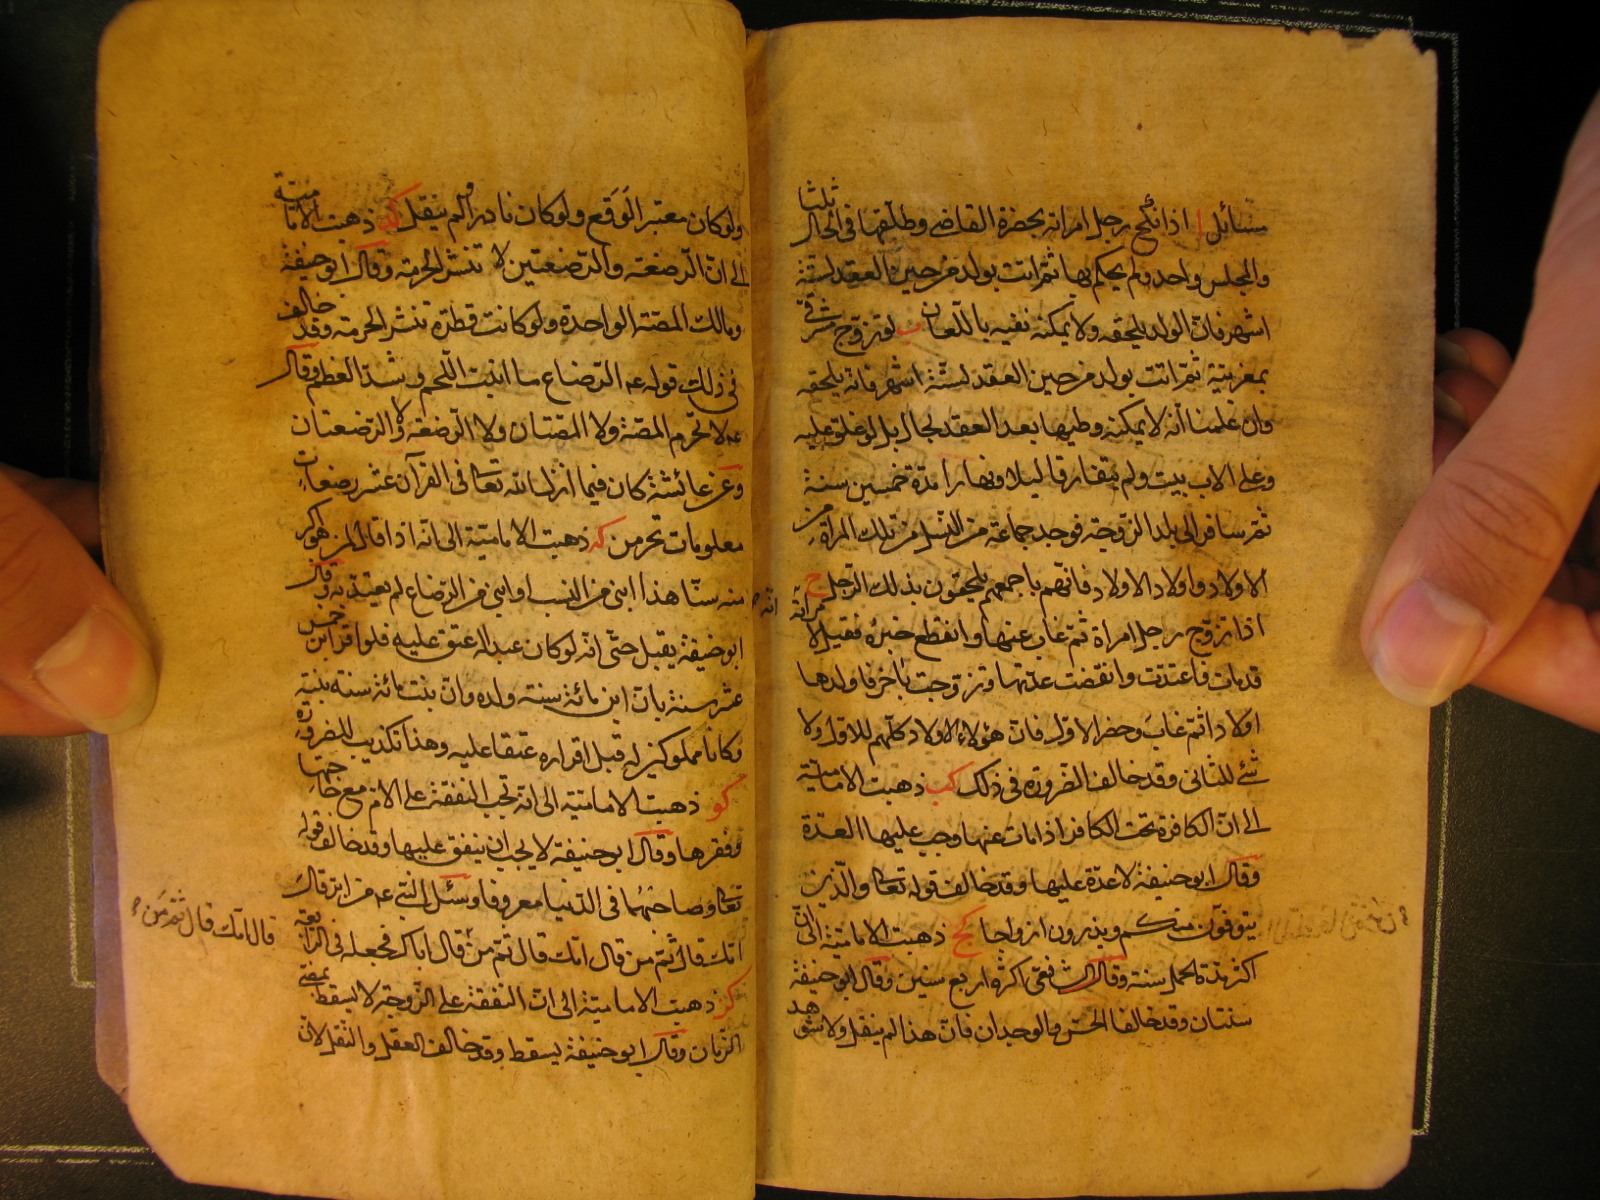 مسائل ا اذا نكح رجل امراته بحضرة القاضى وطلقها فى الحال ثلثا
والمجلس واحد ولم يحكم بها ثم اتت بولد من حين العقد لستة
اشهر فان الولد يلحقه ولا يمكنه نفيه باللعان ب لو تزوج مشرقى
بمغربية ثم اتت بولد من حين العقد لستة اشهر فانه يلحقه
وان علمنا انه لا يمكنه وطيها بعد العقد بحال بل لو غلق عليه
وعلى الاب بيت ولم يتفارقا ليلا ونهارا مدة خمسين سنة
ثم سافر الى بلد الزوجة فوجد جماعة من النسل من تلك المراة من
الاولاد واولاد الاولاد فانهم باجمعهم يلحقون بذلك الرجل ج
اذا تزوج رجل امراة ثم غاب عنها وانقطع خبره فقيل لامراته انه
قد مات فاعتدت وانقضت عدتها وتزوجت باخر فاولدها
اولادا ثم غاب وحضر الاول فان هؤلاء الاولاد كلهم للاول ولا
شئ للثانى وقد خالف الضرورة فى ذلك كب ذهبت الامامية
الى ان الكافرة تحت الكافر اذا مات عنها وجب عليها العدة
وقال ابو حنيفة لا عدة عليها وقد خالف قوله تعالى والذين
يتوفون منكم ويذرون ازواجا كج ذهبت الامامية الى ان
اكثر مدة الحمل سنة وقال الشافعى اكثره اربع سنين وقال ابو حنيفة
سنتان وقد خالفا الحس والوجدان فان هذا لم ينقل ولا شوهد
ولو كان معتبرا لوقع ولو كان نادرا ولم ينقل كد ذهبت الامامية
الى ان الرضعة والرضعتين لا تنشر الحرمة وقال ابو حنيفة
ومالك المصة الواحدة ولو كانت قطرة تنشر الحرمة وقد خالف
فى ذلك قوله عم الرضاع ما انبت اللحم وشد العظم وقال
عم لا تحرم المصة ولا المصتان ولا الرضعة ولا الرضعتان
وعن عائشة كان فيما انزل الله تعالى فى القرآن عشر رضعات
معلومات تحرمن كه ذهبت الامامية الى انه اذا قال لمن هو اكبر
منه سنا هذا ابنى من النسب او ابنى من الرضاع لم يعتد به وقال
ابو حنيفة يقبل حتى انه لو كان عبدا له عتق عليه فلو اقر ابن خمس
عشر سنة بان ابن مائة سنة ولده وان بنت مائة سنة بنته
وكانا مملوكين له قبل اقراره عتقا عليه وهذا تكذيب للضرورة
كو ذهبت الامامية الى انه تجب النفقة على الام مع حاجتها
وفقرها وقال ابو حنيفة لا يجب ان ينفق عليها وقد خالف قوله
تعالى وصاحبهما فى الدنيا معروفا وسئل النبى عم من ابر قال
امك قال ثم من قال امك قال ثم من قال اباك فجعله فى الرابعة
قال امك قال ثم من
كز ذهبت الامامية الى ان النفقة على الزوجة لا يسقط بمضى
الزمان وقال ابو حنيفة يسقط وقد خالف العقل والنقل لان